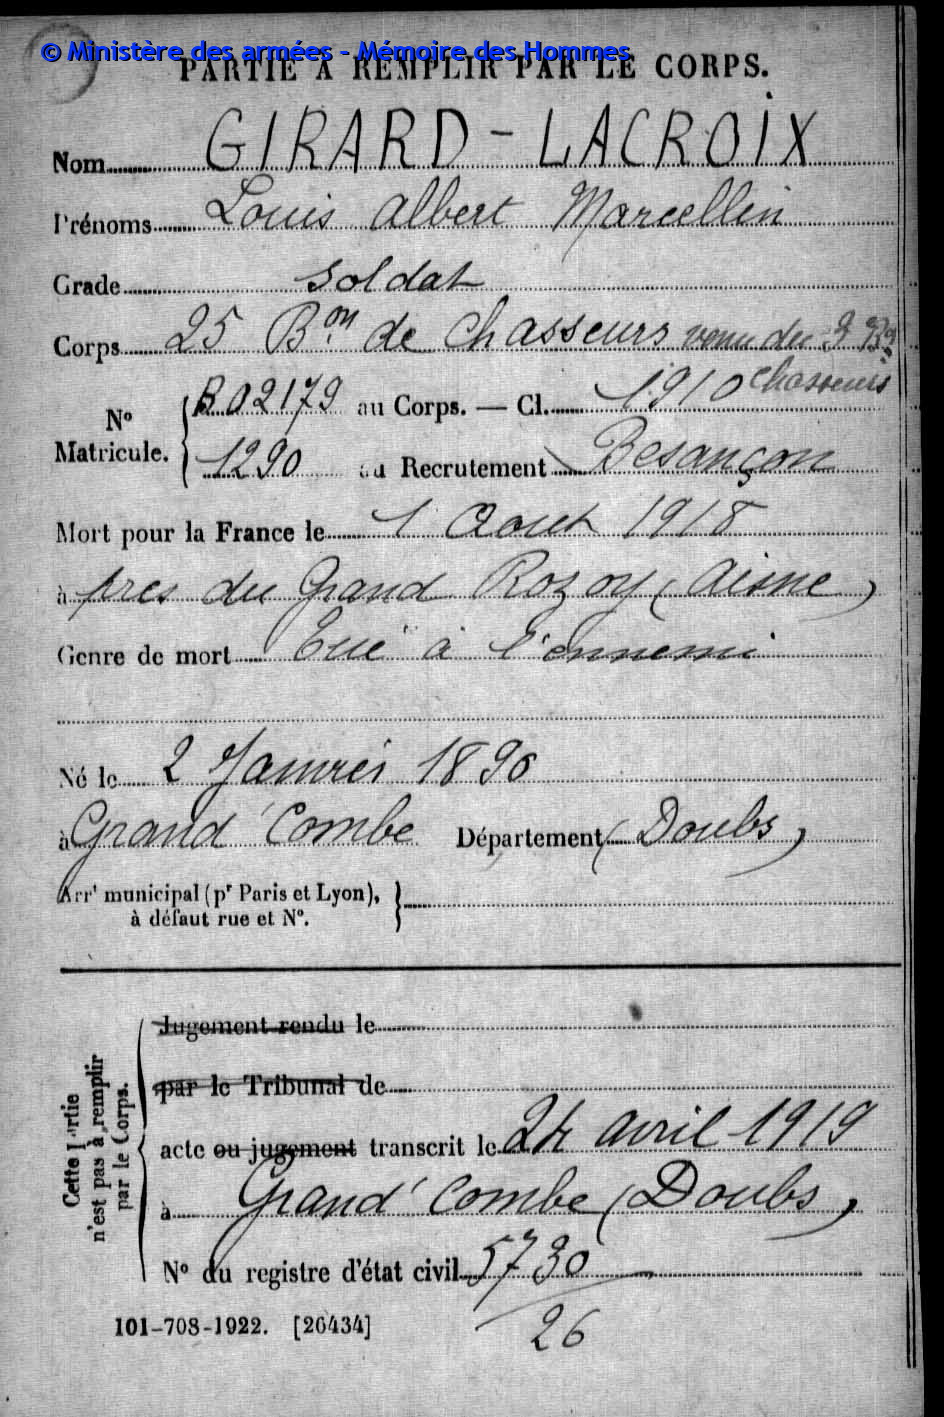 © Ministère des armées - Mémoire des Hommes
PARTIE À REMPLIR PAR LE CORPS.
Nom GIRARD - LACROIX
Prénoms Louis Albert Marcellin
Grade soldat
Corps 25 Bon de Chasseurs venu du 3 Bon
chasseurs
R 02179 au Corps. — Cl. 1910
N° Matricule.
1290 au Recrutement Besançon
Mort pour la France le 1 Aout 1918
à pres du Grand Rozoy (Aisne)
Genre de mort Tué à l'ennemi
Né le 2 Janvier 1890
à Grand' Combe Département (Doubs)
Arrt municipal (pr Paris et Lyon),
à défaut rue et N°.
Cette Partie
n'est pas à remplir
par le Corps.
Jugement rendu le
par le Tribunal de
acte ou jugement transcrit le 24 avril 1919
à Grand' Combe (Doubs)
N° du registre d'état civil 5730
26
101-708-1922. [26434]